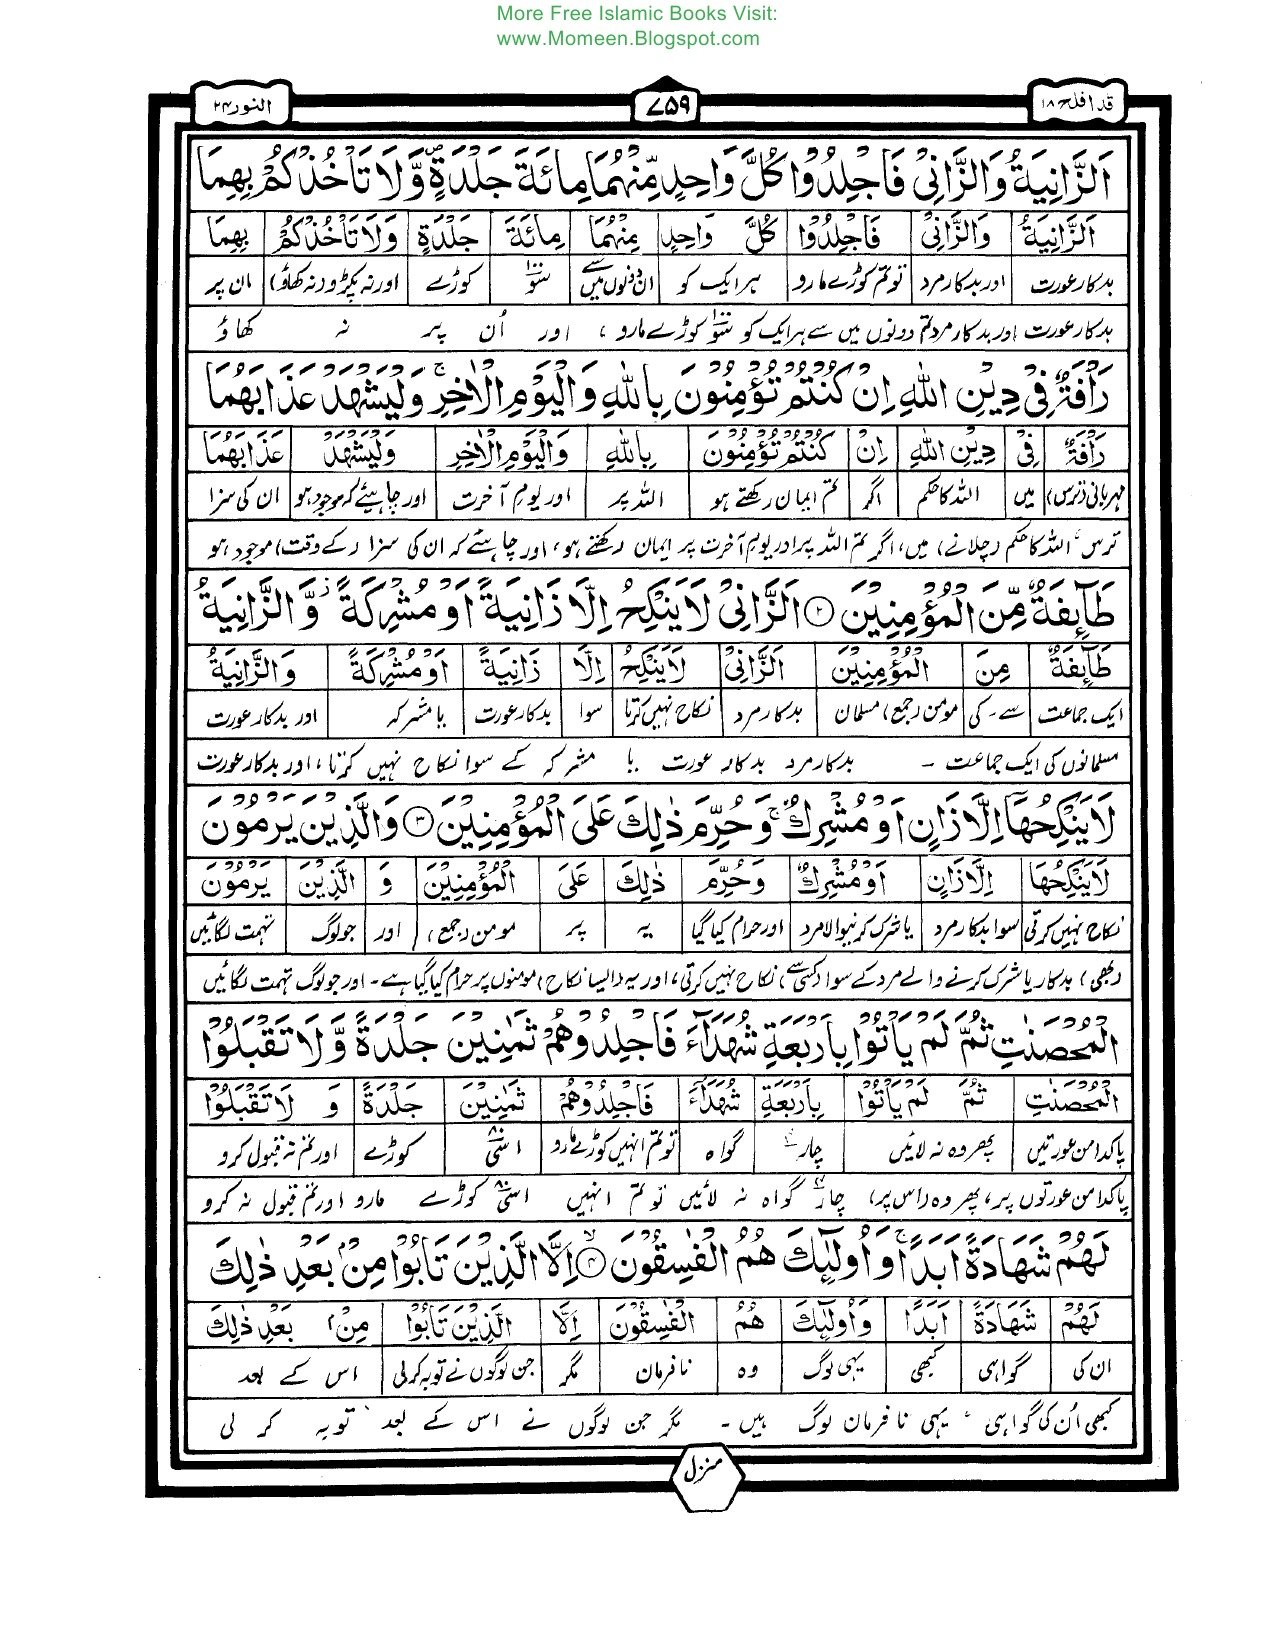 More Free Islamic Books Visit:
www.Momeen.Blogspot.com
قد افلح ۱۸
۷۵۹
النور ۲۴
اَلزَّانِيَةُ وَالزَّانِيْ فَاجْلِدُوْا كُلَّ وَاحِدٍ مِّنْهُمَا مِائَةَ جَلْدَةٍ ۪ وَّلَا تَاْخُذْكُمْ بِهِمَا
اَلزَّانِيَةُ وَالزَّانِيْ فَاجْلِدُوْا كُلَّ وَاحِدٍ مِنْهُمَا مِائَةَ جَلْدَةٍ وَلَا تَاْخُذْكُمْ بِهِمَا
بدکار عورت اور بدکار مرد تو تم کوڑے مارو ہر ایک کو ان دونوں میں سے سو ۱۰۰ کوڑے اور نہ پکڑو (نہ کھاؤ) ان پر
بدکار عورت اور بدکار مرد تم دونوں میں سے ہر ایک کو سو ۱۰۰ کوڑے مارو ، اور اُن پر نہ کھاؤ
رَاْفَةٌ فِيْ دِيْنِ اللّٰهِ اِنْ كُنْتُمْ تُؤْمِنُوْنَ بِاللّٰهِ وَالْيَوْمِ الْاٰخِرِ ۚ وَلْيَشْهَدْ عَذَابَهُمَا
رَاْفَةٌ فِيْ دِيْنِ اللّٰهِ اِنْ كُنْتُمْ تُؤْمِنُوْنَ بِاللّٰهِ وَالْيَوْمِ الْاٰخِرِ وَلْيَشْهَدْ عَذَابَهُمَا
مہربانی (ترس) میں اللہ کا حکم اگر تم ایمان رکھتے ہو اللہ پر اور یومِ آخرت اور چاہیئے کہ موجود ہو ان کی سزا
ترس اللہ کا حکم (چلانے) میں، اگر تم اللہ پر اور یوم آخرت پر ایمان رکھتے ہو، اور چاہیئے کہ ان کی سزا (کے وقت) موجود ہو
طَآئِفَةٌ مِّنَ الْمُؤْمِنِيْنَ ۲ اَلزَّانِيْ لَا يَنْكِحُ اِلَّا زَانِيَةً اَوْ مُشْرِكَةً ۡ وَّالزَّانِيَةُ
طَآئِفَةٌ مِنَ الْمُؤْمِنِيْنَ اَلزَّانِيْ لَا يَنْكِحُ اِلَّا زَانِيَةً اَوْ مُشْرِكَةً وَالزَّانِيَةُ
ایک جماعت سے۔ کی مومن (جمع) مسلمان بدکار مرد نکاح نہیں کرتا سوا بدکار عورت یا مشرکہ اور بدکار عورت
مسلمانوں کی ایک جماعت ۔ بدکار مرد بدکار عورت یا مشرکہ کے سوا نکاح نہیں کرتا، اور بدکار عورت
لَا يَنْكِحُهَآ اِلَّا زَانٍ اَوْ مُشْرِكٌ ۚ وَحُرِّمَ ذٰلِكَ عَلَى الْمُؤْمِنِيْنَ ۳ وَالَّذِيْنَ يَرْمُوْنَ
لَا يَنْكِحُهَا اِلَّا زَانٍ اَوْ مُشْرِكٌ وَحُرِّمَ ذٰلِكَ عَلَى الْمُؤْمِنِيْنَ وَ الَّذِيْنَ يَرْمُوْنَ
نکاح نہیں کرتی سوا بدکار مرد یا شرک کرنیوالا مرد اور حرام کیا گیا یہ پر مومن (جمع) اور جو لوگ تہمت لگائیں
(بھی) بدکار یا شرک کرنے والے مرد کے سوا (کسی سے) نکاح نہیں کرتی، اور یہ (ایسا نکاح) مومنوں پر حرام کیا گیا ہے۔ اور جو لوگ تہمت لگائیں
الْمُحْصَنٰتِ ثُمَّ لَمْ يَاْتُوْا بِاَرْبَعَةِ شُهَدَآءَ فَاجْلِدُوْهُمْ ثَمٰنِيْنَ جَلْدَةً وَّلَا تَقْبَلُوْا
الْمُحْصَنٰتِ ثُمَّ لَمْ يَاْتُوْا بِاَرْبَعَةِ شُهَدَآءَ فَاجْلِدُوْهُمْ ثَمٰنِيْنَ جَلْدَةً وَ لَا تَقْبَلُوْا
پاکدامن عورتیں پھر وہ نہ لائیں چار ۴ گواہ تو تم انہیں کوڑے مارو اسی ۸۰ کوڑے اور تم نہ قبول کرو
پاکدامن عورتوں پر، پھر وہ (اس پر) چار ۴ گواہ نہ لائیں تو تم انہیں اسی ۸۰ کوڑے مارو اور تم قبول نہ کرو
لَهُمْ شَهَادَةً اَبَدًا ۚ وَاُولٰٓئِكَ هُمُ الْفٰسِقُوْنَ ۙ ۴ اِلَّا الَّذِيْنَ تَابُوْا مِنْۢ بَعْدِ ذٰلِكَ
لَهُمْ شَهَادَةً اَبَدًا وَاُولٰٓئِكَ هُمُ الْفٰسِقُوْنَ اِلَّا الَّذِيْنَ تَابُوْا مِنْۢ بَعْدِ ذٰلِكَ
ان کی گواہی کبھی یہی لوگ وہ نافرمان مگر جن لوگوں نے توبہ کرلی اس کے بعد
کبھی اُن کی گواہی ، یہی نافرمان لوگ ہیں ۔ مگر جن لوگوں نے اس کے بعد توبہ کر لی
منزل